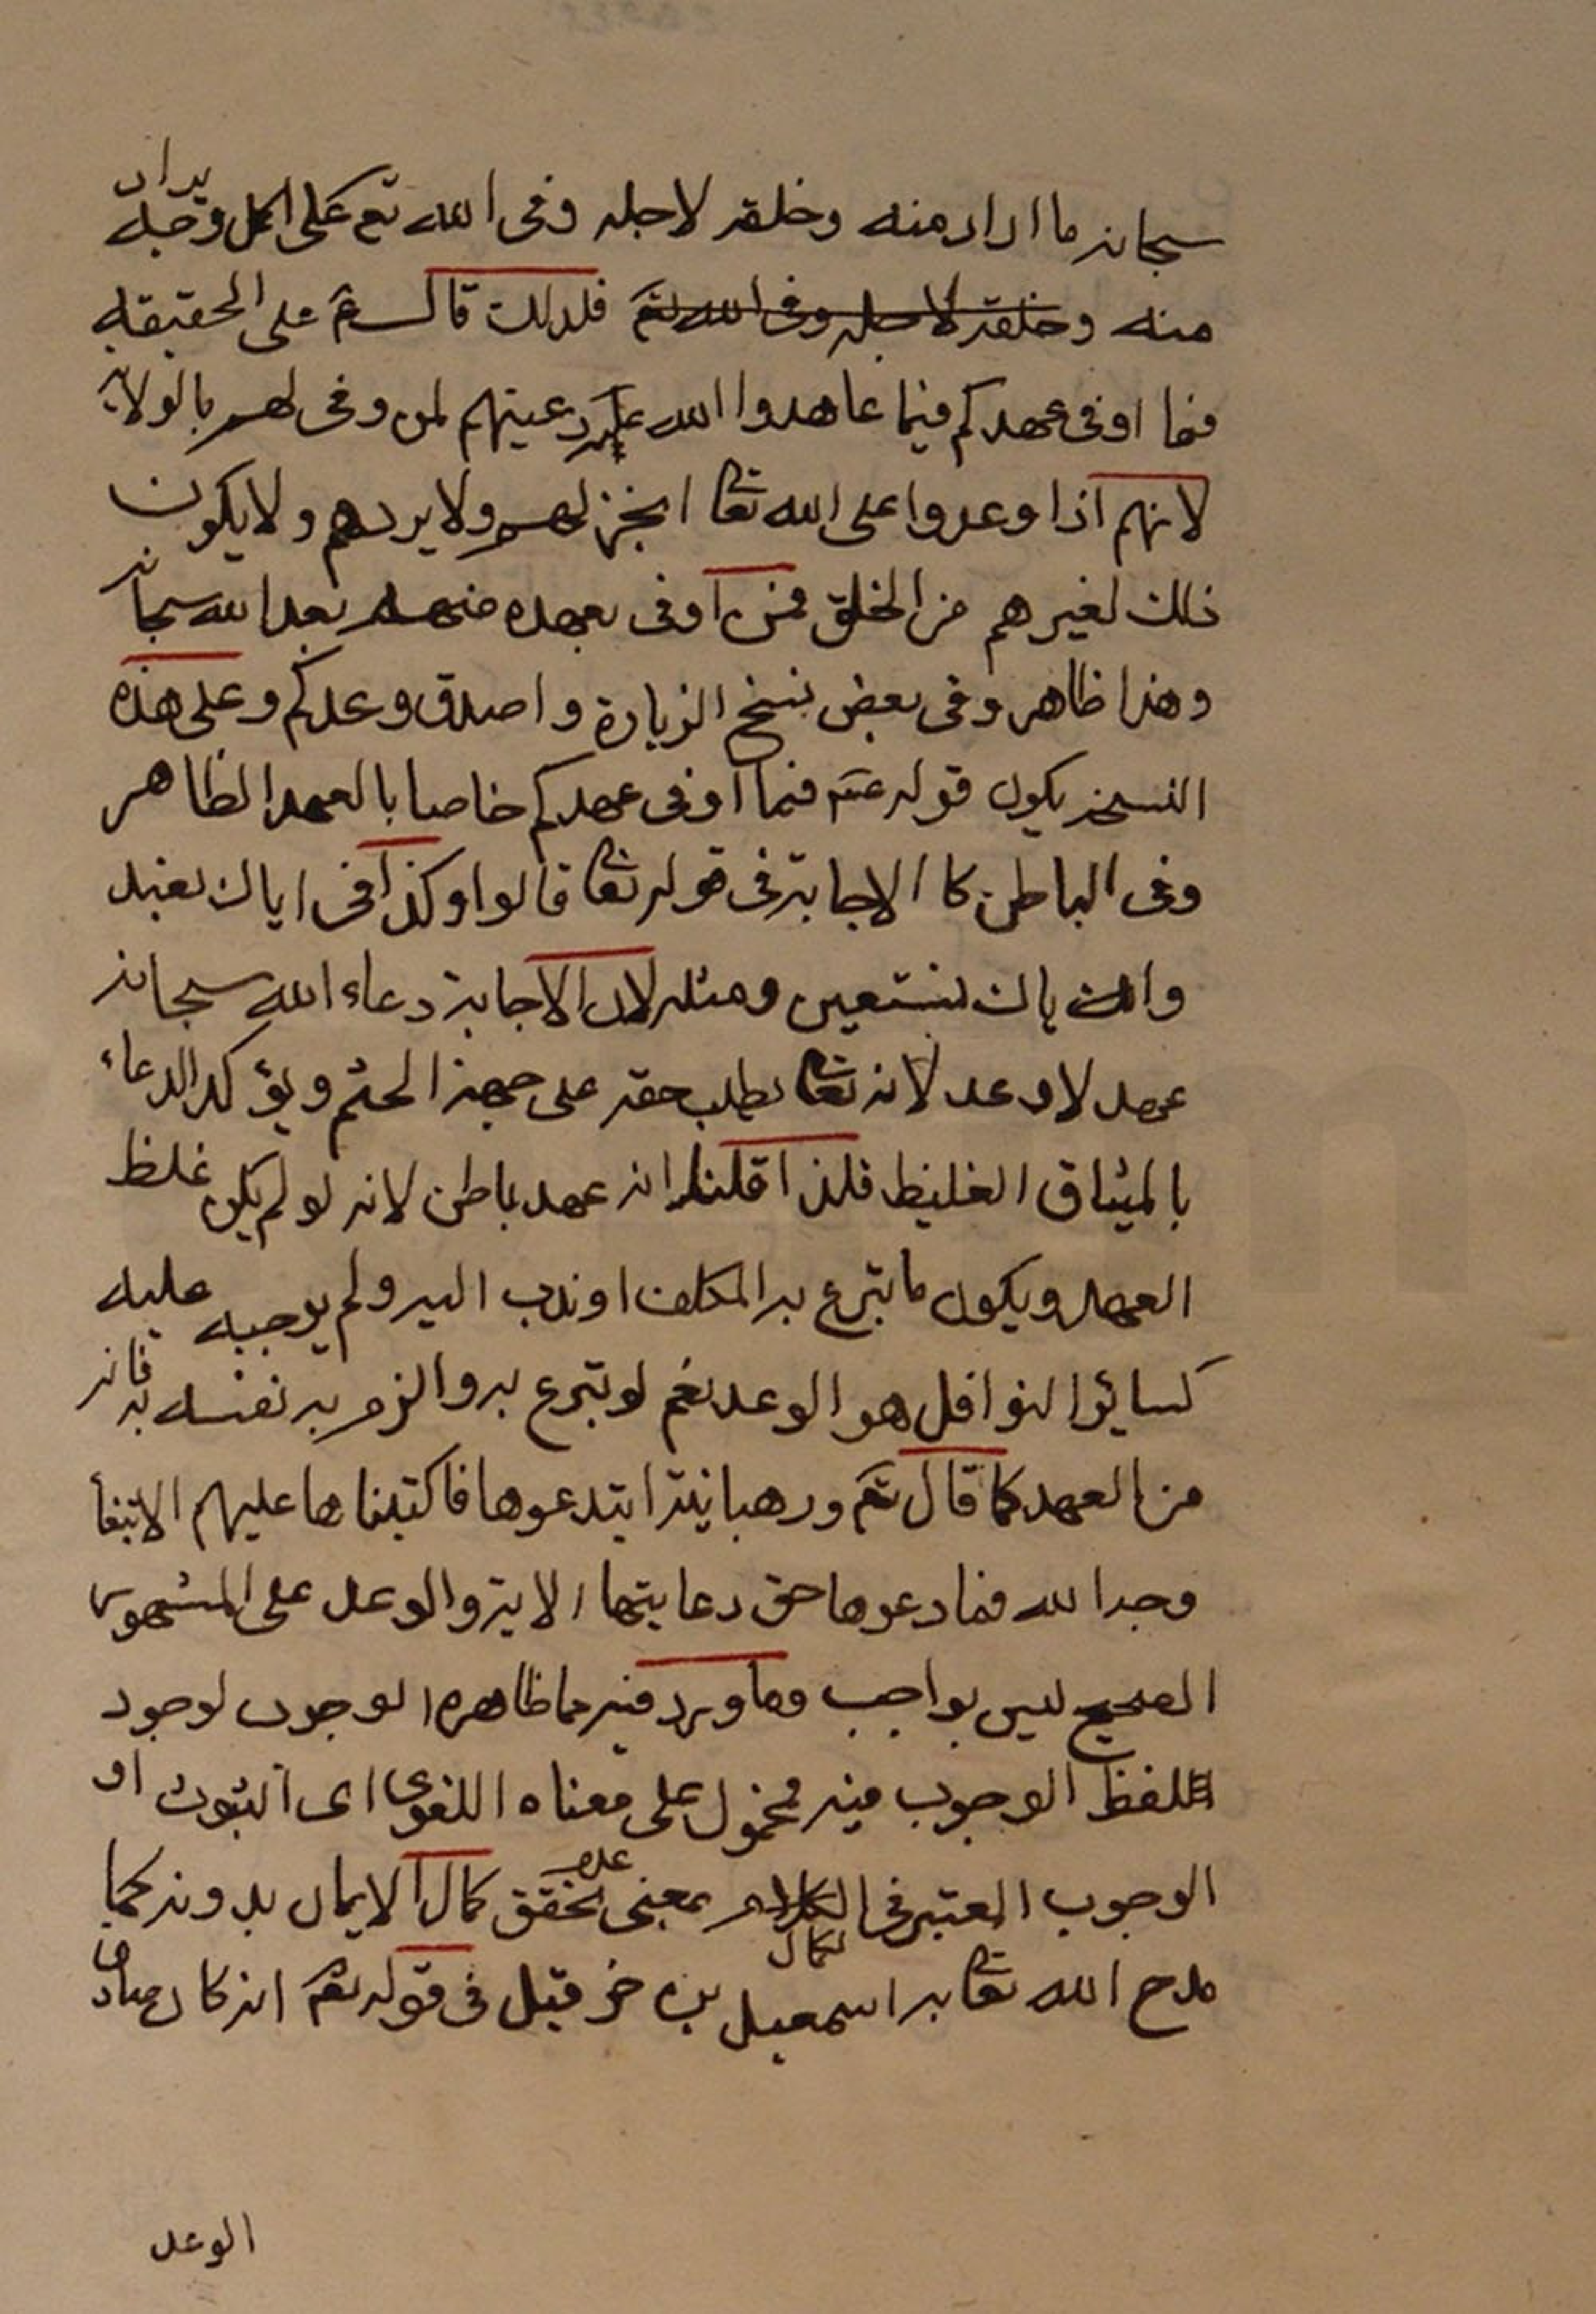 سبحانه ما اراد منه وخلقه لاجله وفى الله تع على اكمل وجه يراد
منه وخلقه لاجله وفى الله تعم فلذلك قال ع على الحقيقة
فما اوفى عهدكم فيما عاهدوا الله عليه رعيتهم لمن وفى لهم بالولاية
لانهم اذا وعدوا على الله تعا انجز لهم ولا يردهم ولا يكون
ذلك لغيرهم من الخلق فمن اوفى بعهده منهم بعد الله سبحانه
وهذا ظاهر وفى بعض نسخ الزيارة واصدق وعدكم وعلى هذه
النسخه يكون قوله ع فما اوفى عهدكم خاصا بالعهد الظاهر
وفى الباطن كا الاجابة فى قوله تعا قالوا وكذا فى اياك نعبد
واياك نستعين ومثله لان الاجابة دعاء الله سبحانه
عهد لا وعد لانه تعا يطلب حقه على جهة الحتم ويؤكد الدعاء
بالميثاق الغليظ فلذا قلنا انه عهد باطن لانه لو لم يكن غلظ
العهد ويكون ما تبرع به المكلف او ندب اليه ولم يوجبه عليه
كسائر النوافل هو الوعد نعم لو تبرع به والزم به نفسه به فانه
من العهد كما قال تعم ورهبانية ابتدعوها فاكتبناها عليهم الابتغا
وجه الله فما دعوها حق دعايتها الاية والوعد على المشهور
الصحيح ليس بواجب وما ورد فيه مما ظاهره الوجوب لوجود
لفظ الوجوب فيه محمول على معناه اللغوى اى الثبوت او
الوجوب المعتبر فى الكمال بمعنى عدم تحقق كمال الايمان بدونه كما
مدح الله تعا به اسمعيل بن حزقيل فى قوله تعم انه كان صادق
الوعد